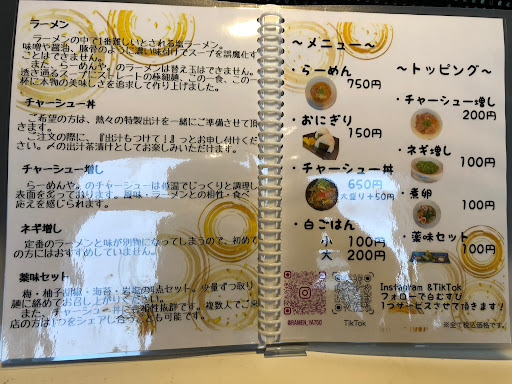 ラーメン
ラーメンの中で1番難しいとされる塩ラーメン。
味噌や醤油、豚骨のように濃い味付けでスープを誤魔化す
ことはできません。
また、らーめんや。のラーメンは替え玉はできません。
透き通るスープにストレートの極細麺、この一食、この一
杯に本物の美味しさを追求して作り上げました。
チャーシュー丼
ご希望の方は、熱々の特製出汁を一緒にご準備させて頂
きます。
ご注文の際に、『出汁もつけて!』っとお申し付けくださ
い。〆の出汁茶漬けとしてお楽しみいただけます。
チャーシュー増し
らーめんや。のチャーシューは低温でじっくりと調理し
表面を炙っております。風味・ラーメンとの相性・食べ
応えを感じられます。
ネギ増し
定番のラーメンと味が別物になってしまうので、初めて
の方にはおすすめしていません。
薬味セット
梅・柚子胡椒・海苔・岩塩の4点セット。少量ずつ取り
麺に絡めてお召し上がりください。
また、チャーシュー丼にも相性抜群です。複数人でご来
店の方は1つをシェアし合うのも可能です。
～メニュー～
・らーめん
750円
・おにぎり
150円
・チャーシュー丼
650円
大盛り+50円
・白ごはん
小 100円
大 200円
～トッピング～
・チャーシュー増し
200円
・ネギ増し
100円
・煮卵
100円
・薬味セット
100円
@RAMEN_YA750
TikTok
Instagram &TikTok
フォローで白むすび
1つサービスさせて頂きます!
※全て税込価格です。